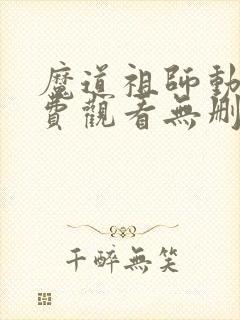 魔道祖師動
費觀看無刪
千醉無笑